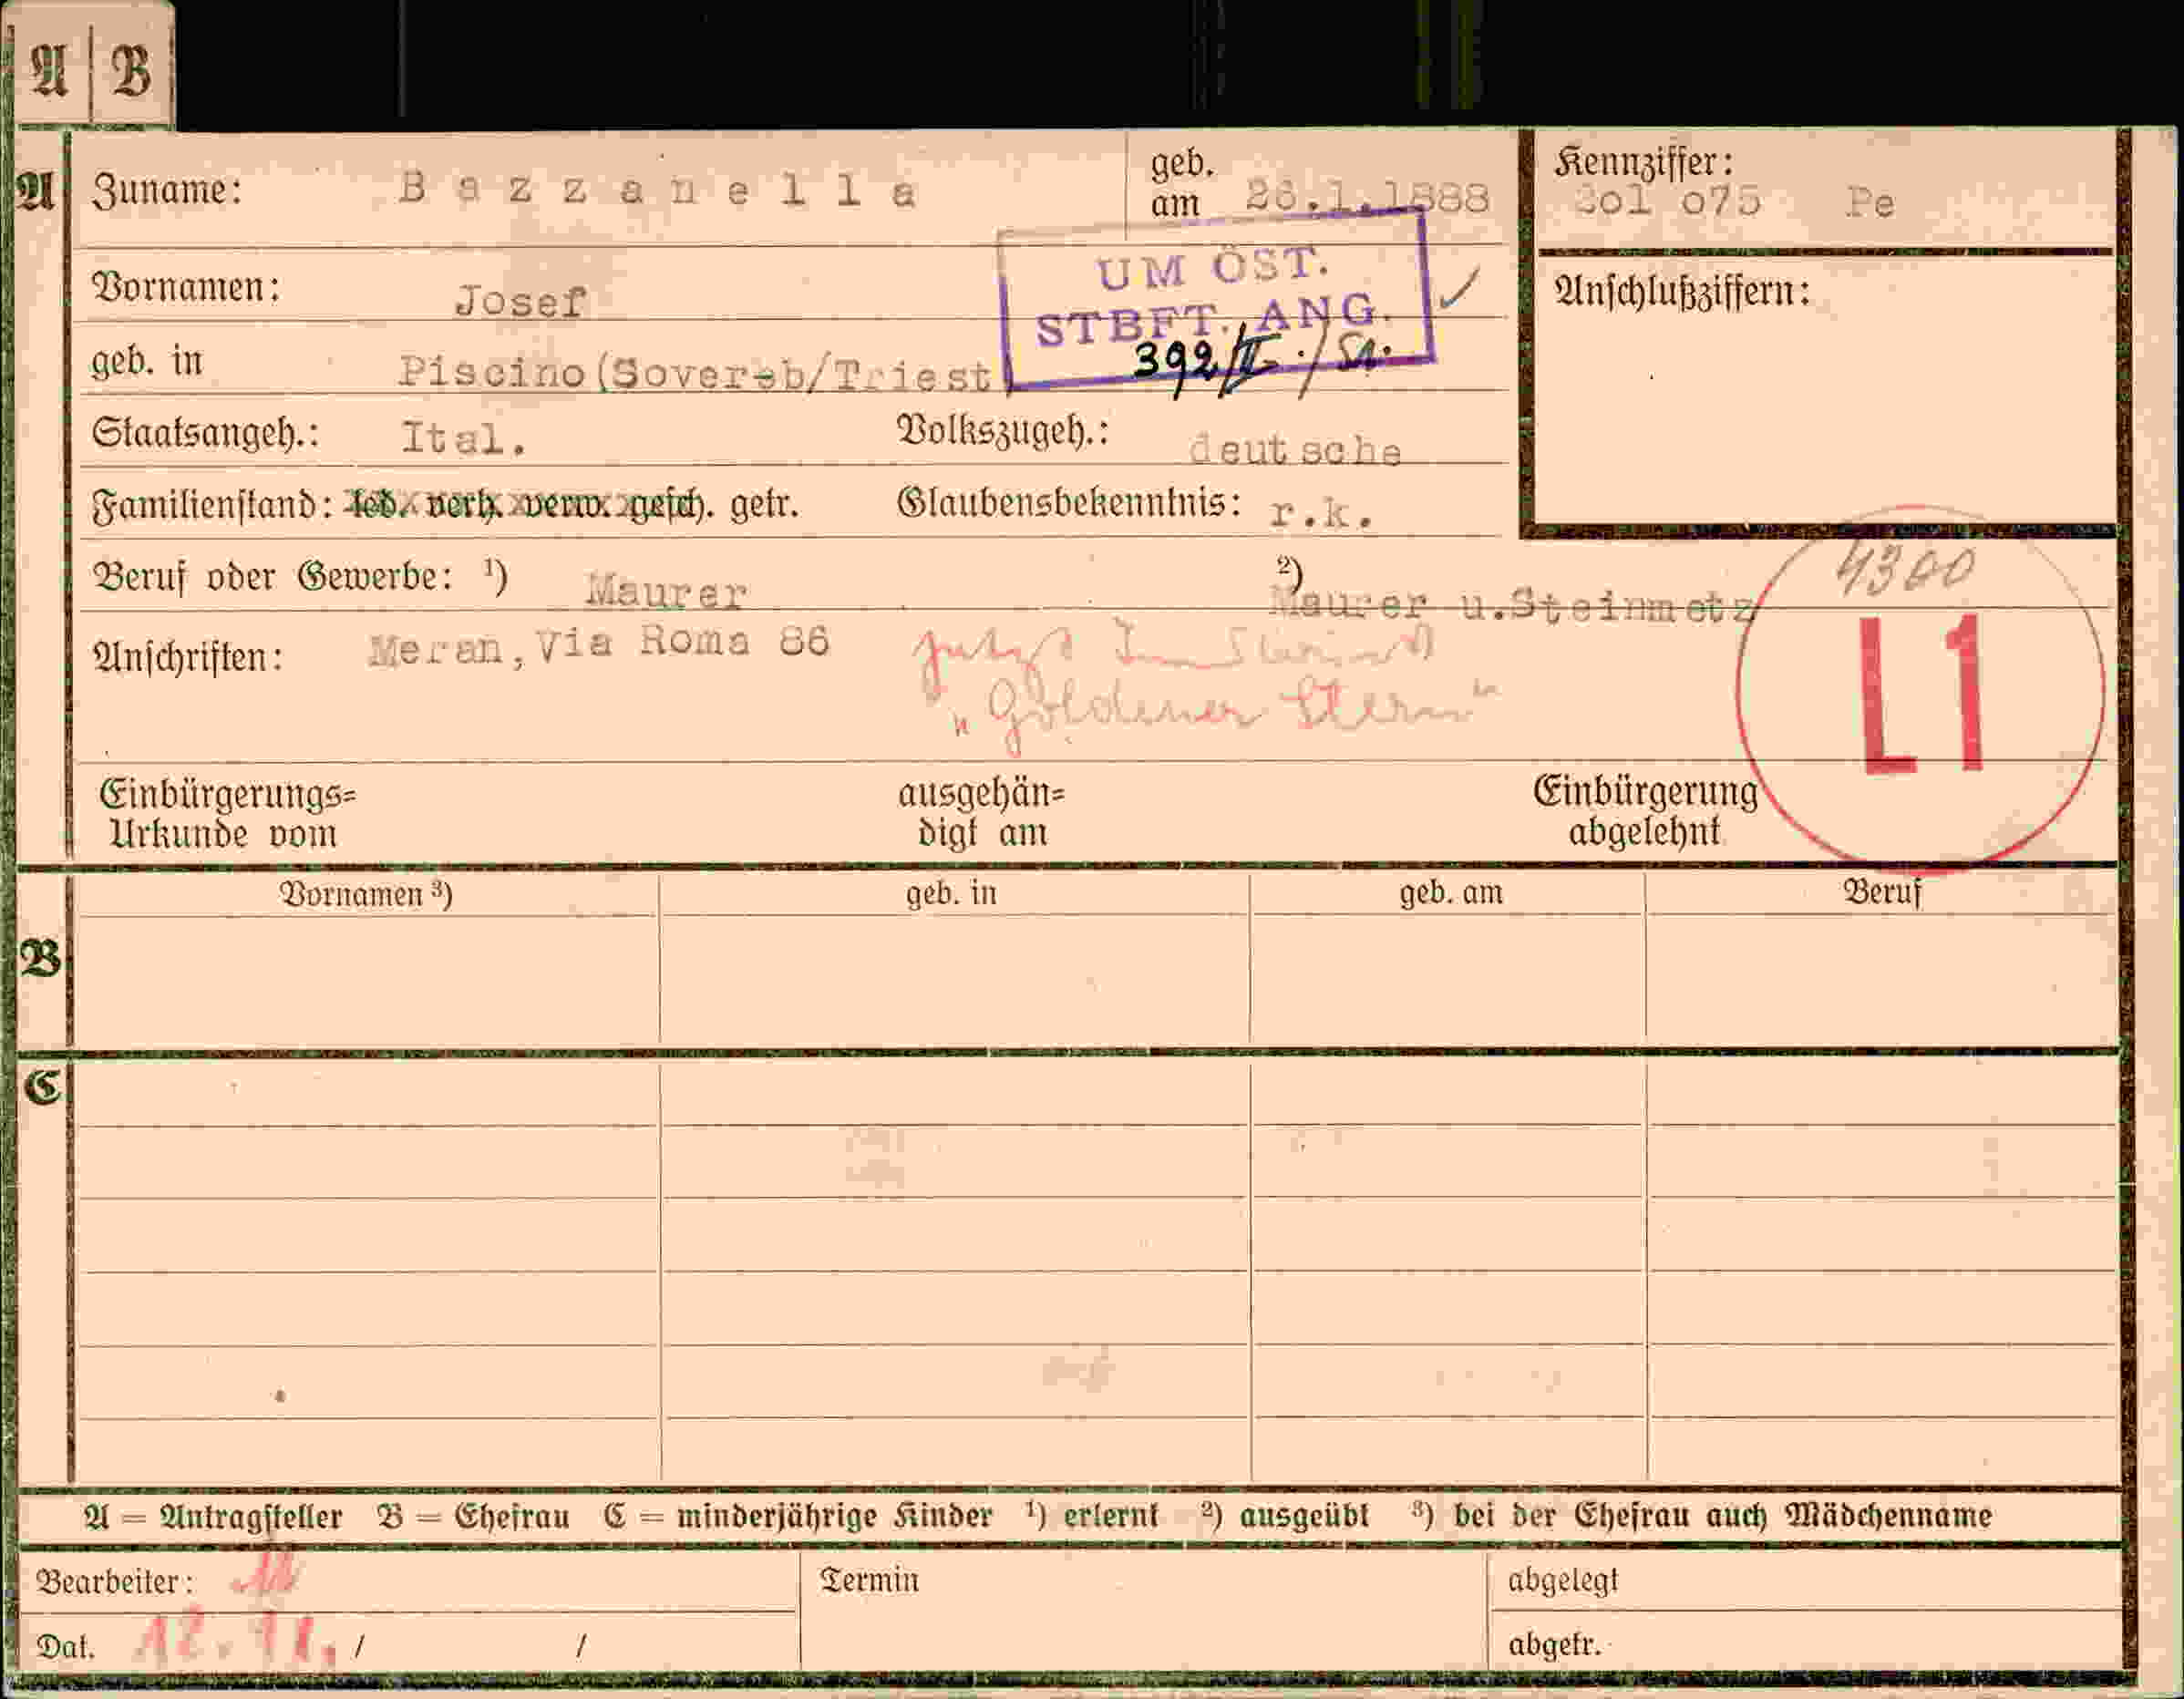 A | B
A Zuname: Bazzanella geb. am 28.1.1888 Kennziffer: 201 075 Pe
UM ÖST.
STBFT. ANG.
392/II./51.
Vornamen: Josef Anschlußziffern:
geb. in Piscino(Sovereb/Triest
Staatsangeh.: Ital. Volkszugeh.: deutsche
Familienstand: led. verh. verw. gesch. getr. Glaubensbekenntnis: r.k.
4300
Beruf oder Gewerbe: ¹) Maurer ²) Maurer u.Steinmetz
L1
Anschriften: Meran, Via Roma 86 jetzt
„Goldener Stern"
Einbürgerungs=
Urkunde vom
ausgehän=
digt am
Einbürgerung
abgelehnt
Vornamen ³) geb. in geb. am Beruf
B
C
A = Antragsteller B = Ehefrau C = minderjährige Kinder ¹) erlernt ²) ausgeübt ³) bei der Ehefrau auch Mädchenname
Bearbeiter: Termin abgelegt
Dat. 12.11. / / abgetr.